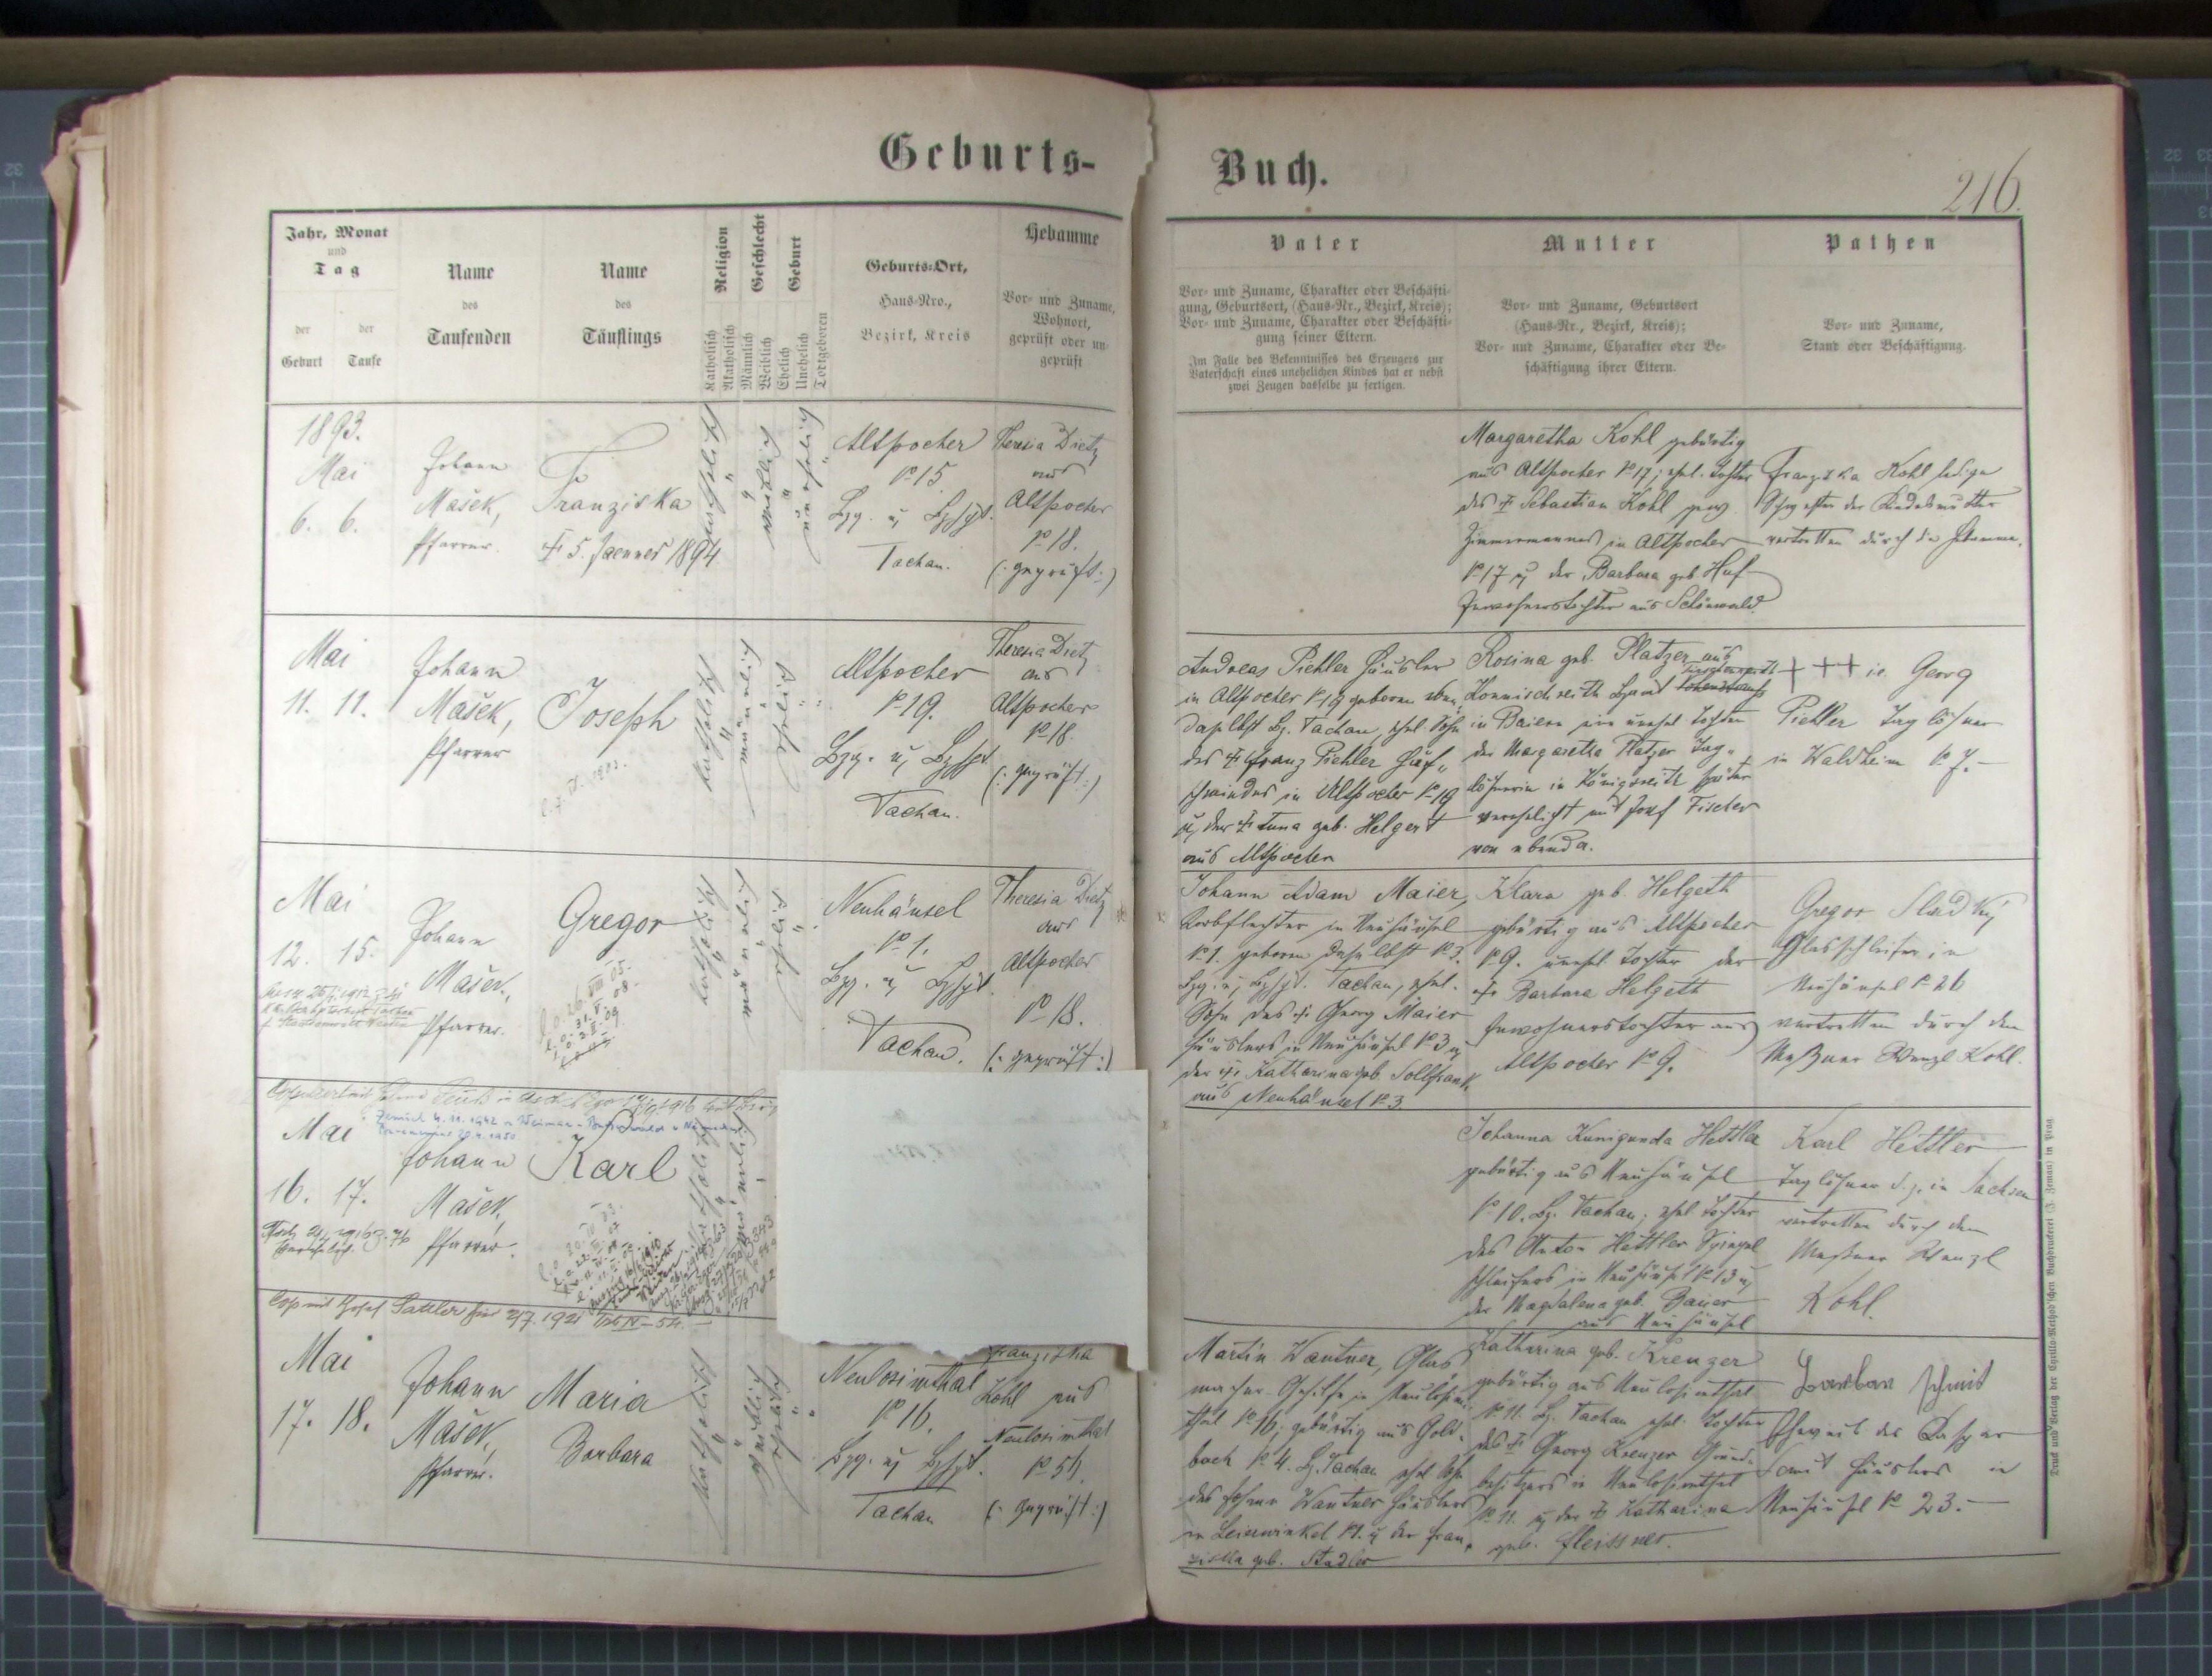 Geburts-
Buch.
216.
Jahr, Monat
und
Tag
der
Geburt
der
Taufe
Name
des
Taufenden
Name
des
Täuflings
Religion
Katholisch
Akatholisch
Geschlecht
Männlich
Weiblich
Geburt
Ehelich
Unehelich
Todtgeboren
Geburts-Ort,
Haus-Nro.,
Bezirk, Kreis
Hebamme
Vor- und Zuname,
Wohnort,
geprüft oder un-
geprüft
Vater
Vor- und Zuname, Charakter oder Beschäfti-
gung, Geburtsort, (Haus-Nr., Bezirk, Kreis);
Vor- und Zuname, Charakter oder Beschäfti-
gung seiner Eltern.
Im Falle des Bekenntnisses des Erzeugers zur
Vaterschaft eines unehelichen Kindes hat er nebst
zwei Zeugen dasselbe zu fertigen.
Mutter
Vor- und Zuname, Geburtsort
(Haus-Nr., Bezirk, Kreis);
Vor- und Zuname, Charakter oder Be-
schäftigung ihrer Eltern.
Pathen
Vor- und Zuname,
Stand oder Beschäftigung.
1893.
Mai
6. 6.
Johann
Mašek,
Pfarrer.
Franziska
5. Jaenner 1894
katholisch
weiblich
unehelich
Altpocher
No 15
Bzg. u. Bzhpt.
Tachau.
Theresia Dietz
aus
Altpocher
No 18.
(: geprüft :)
Margaretha Kohl gebürtig
aus Altpocher No 17; ehel. Tochter
des † Sebastian Kohl
Zimmermannes in Altpocher
No 17 u. der Barbara geb. Huf
Inwohnerstochter aus Schönwald.
Franziska Kohl ledige
Schwester der Kindesmutter
vertretten durch die Hebamme.
Mai
11. 11.
Johann
Mašek,
Pfarrer
Joseph
katholisch
männlich
ehelich
Altpocher
No 19.
Bzg. u. Bzhpt.
Tachau.
Theresia Dietz
aus
Altpocher
No 18.
(: geprüft :)
Andreas Piehler Häusler
in Altpocher No 19 geboren eben
daselbst Bz. Tachau, ehel. Sohn
des † Franz Piehler
in Altpocher No 19
u. der † Anna geb. Helgert
aus Altpocher
Rosina geb. Platzer aus
in Baiern eine unehel. Tochter
der Margaretha Platzer Tag-
löhnerin in Königsreith später
verehelicht mit Josef Fischer
von ebenda.
+++ ie Georg
Piehler Taglöhner
in Waldheim No 7.
Mai
12. 15.
Johann
Mašek,
Pfarrer.
Gregor
katholisch
männlich
ehelich
Neuhäusel
No 1.
Bzg. u. Bzhpt.
Tachau.
Theresia Dietz
aus
Altpocher
No 18.
(: geprüft :)
Johann Adam Maier,
Korbflechter in Neuhäusel
No 1. geboren daselbst No 3.
Bzg. u. Bzhpt. Tachau, ehel.
Sohn des † Georg Maier
Häuslers in Neuhäusel No 3 u.
der † Katharina geb. Sollfrank
aus Neuhäusel No 3.
Klara geb. Helgeth
gebürtig aus Altpocher
No 9. unehel. Tochter der
† Barbara Helgeth
Inwohnerstochter aus
Altpocher No 9.
Gregor Sladky
Glasschleifer in
Neuhäusel No 26
vertretten durch den
Meßner Wenzl Kohl.
Mai
16. 17.
Johann
Mašek,
Pfarrer.
Karl
katholisch
männlich
Johanna Kunigunda Hettler
gebürtig aus Neuhäusel
No 10. Bz. Tachau; ehel. Tochter
des Anton Hettler Spiegel
schleifers in Neuhäusel No 13 u.
der Magdalena geb. Baier
aus Neuhäusel
Karl Hettler
Taglöhner d. z. in Sachsen
vertretten durch den
Meßner Wenzl
Kohl.
Mai
17. 18.
Johann
Mašek,
Pfarrer.
Maria
Barbara
katholisch
weiblich
ehelich
Neulosimthal
No 16.
Bzg. u. Bzhpt.
Tachau
Franziska
Kohl aus
Neulosimthal
No 54.
(: geprüft :)
Martin Wantner, Glas
macher-Gehilfe in Neulosim-
thal No 16; gebürtig aus Gold-
bach No 4. Bz. Tachau ehel. Sohn
des Johann Wantner Häuslers
in Leierwinkel No 1. u. der Fran-
ziska geb. Stadler
Katharina geb. Krenzer
gebürtig aus Neulosimthal
No 11. Bz. Tachau ehel. Tochter
des † Georg Krenzer Grund-
besitzers in Neulosimthal
No 11. u. der † Katharina
geb. Fleissner.
Barbara Schmit
Eheweib des Kaspar
Schmit Häuslers in
Neuhäusel No 23.
Druck und Verlag der Cyrillo-Method'schen Buchdruckerei (J. Zeman) in Prag